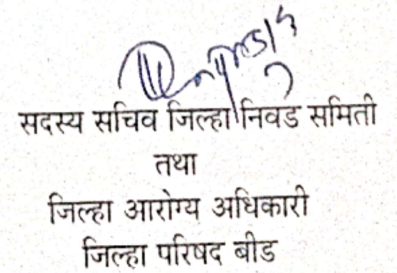 सदस्य सचिव जिल्हा निवड समिती
तथा
जिल्हा आरोग्य अधिकारी
जिल्हा परिषद बीड